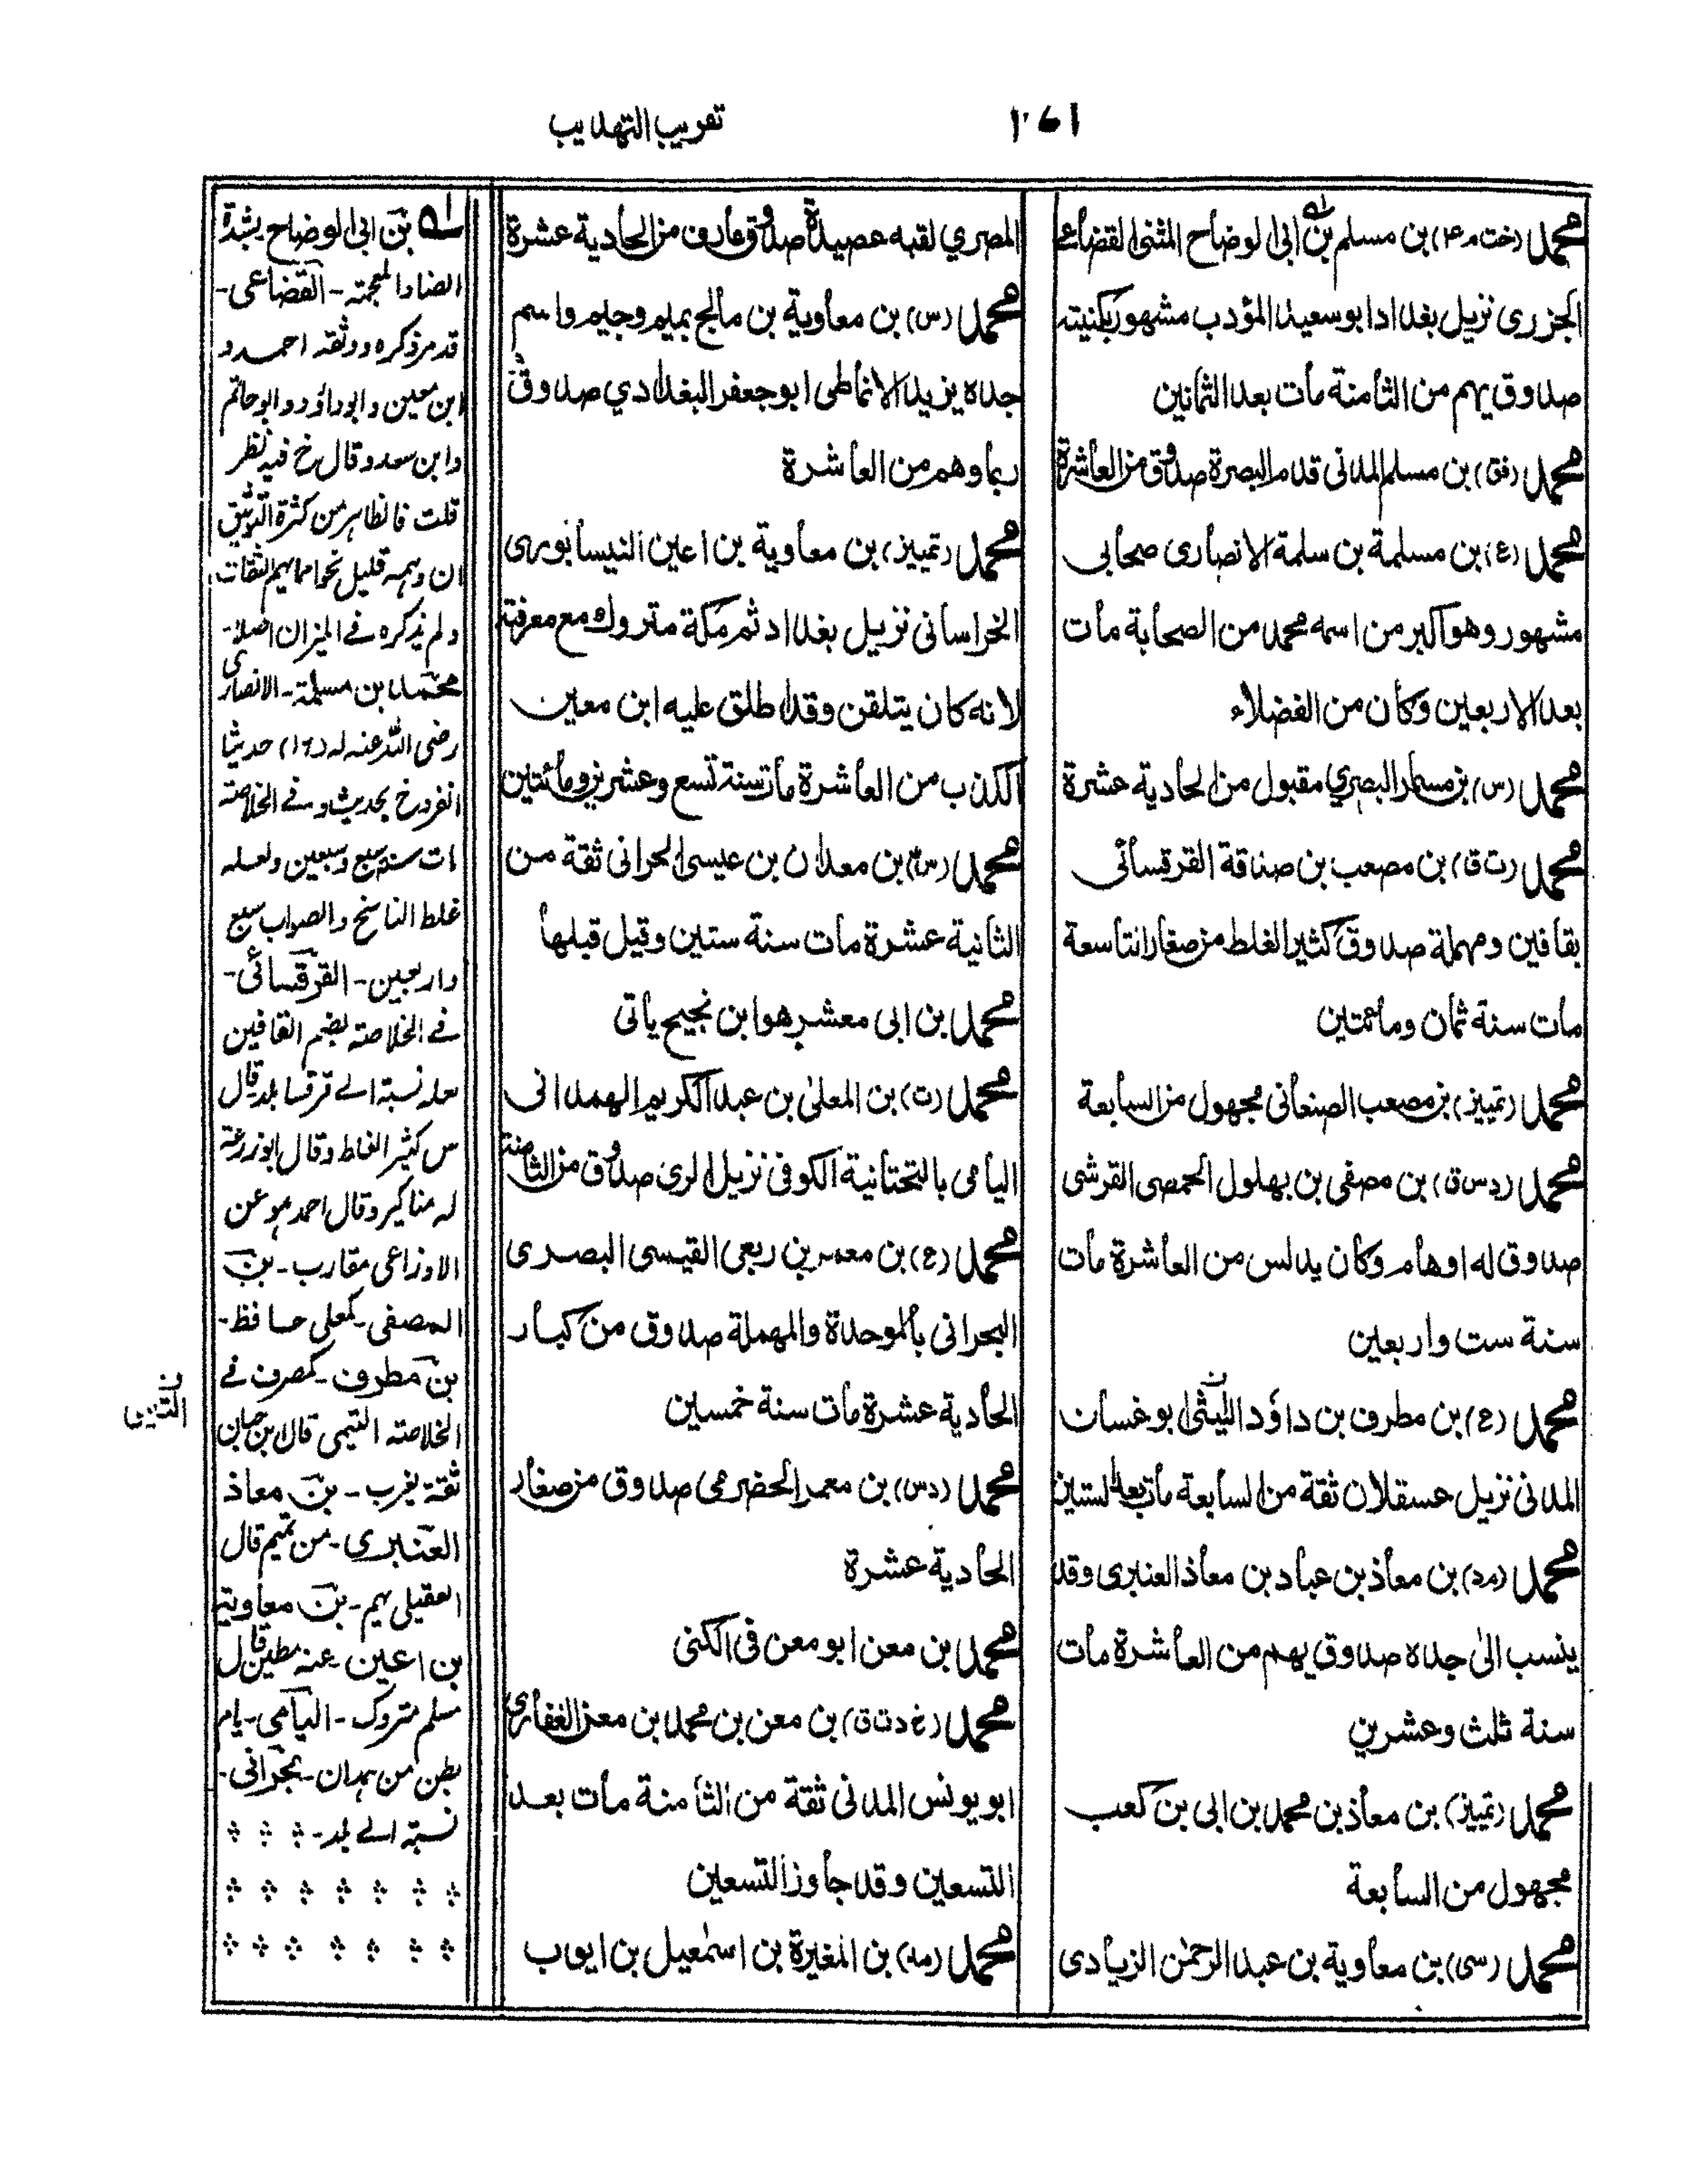 تقريب التهذيب
محمد (خت م ٤) بن مسلم بن ابى الوضاح المثنى القضاعي
الجزرى نزيل بغداد ابو سعيد المؤدب مشهور بكنيته
صدوق يهم من الثامنة مات بعد الثمانين
محمد (فق) بن مسلم المدنى قدم البصرة صدوق من العاشرة
محمد (ع) بن مسلمة بن سلمة الانصارى صحابى
مشهور وهو اكبر من اسمه محمد من الصحابة مات
بعد الاربعين وكان من الفضلاء
محمد (س) بن مسمار البصري مقبول من الحادية عشرة
محمد (ت ق) بن مصعب بن صداقة القرقسائى
بقافين ومهملة صدوق كثير الغلط من صغار التاسعة
مات سنة ثمان ومائتين
محمد (تمييز) بن مصعب الصنعانى مجهول من السابعة
محمد (د س ق) بن مصفى بن بهلول الحمصى القرشى
صدوق له اوهام وكان يدلس من العاشرة مات
سنة ست واربعين
محمد (ع) بن مطرف بن داؤد الليثى ابو غسان
المدنى نزيل عسقلان ثقة من السابعة مات بعد الستين
محمد (م د) بن معاذ بن عباد بن معاذ العنبرى وقد
ينسب الى جده صدوق يهم من العاشرة مات
سنة ثلث وعشرين
محمد (تمييز) بن معاذ بن محمد بن ابى بن كعب
مجهول من السابعة
محمد (سى) بن معاوية بن عبد الرحمٰن الزيادى
المصري لقبه عصيدة صدوق عارف من الحادية عشرة
محمد (س) بن معاوية بن مالج بميم وجيم واسم
جده يزيد الانماطى ابو جعفر البغدادي صدوق
ربما وهم من العاشرة
محمد (تمييز) بن معاوية بن اعين النيسابورى
الخراسانى نزيل بغداد ثم مكة متروك مع معرفته
لانه كان يتلقن وقد اطلق عليه ابن معين
الكذب من العاشرة مات سنة تسع وعشرين ومائتين
محمد (س) بن معدان بن عيسى الحرانى ثقة من
الثانية عشرة مات سنة ستين وقيل قبلها
محمد بن ابى معشر هو ابن نجيح ياتى
محمد (ت) بن المعلىٰ بن عبد الكريم الهمدانى
اليامى بالتحتانية الكوفى نزيل الرى صدوق من الثامنة
محمد (ع) بن معمر بن ربعى القيسى البصرى
البحرانى بالموحدة والمهملة صدوق من كبار
الحادية عشرة مات سنة خمسين
محمد (د س) بن معمر الحضرمى صدوق من صغار
الحادية عشرة
محمد بن معن ابو معن فى الكنى
محمد (خ د ت ق) بن معن بن محمد بن معن الغفارى
ابو يونس المدنى ثقة من الثامنة مات بعد
التسعين وقد جاوز التسعين
محمد (مد) بن المغيرة بن اسمٰعيل بن ايوب
بن ابى الوضاح بشدة
الضاد المعجمة - القضاعى -
قد مر ذكره ووثقه احمد و
ابن معين وابوداؤد وابو حاتم
وابن سعد وقال خ فيه نظر
قلت فالظاهر من كثرة التوثيق
ان وهمه قليل نحوا مما يهم الثقات
ولم يذكره فى الميزان اصلا -
محمد بن مسلمة - الانصارى
رضى الله عنه له (١٦) حديثا
انفرد خ بحديث وفى الخلاصة
مات سنة سبع وسبعين ولعله
غلط الناسخ والصواب سبع
واربعين - القرقسائى -
فى الخلاصة بضم القافين
لعله نسبة الى قرقسا بلد قال
س كثير الغلط وقال ابو زرعة
له مناكير وقال احمد هو عن
الاوزاعى مقارب - بن
المصفى - كمعلى حافظ -
بن مطرف - كمصرف فى
الخلاصة التيمى قال ابن حبان
ثقة يغرب - بن معاذ
العنبرى - من تميم قال
العقيلى يهم - بن معاوية
بن اعين - عنه مطين قال
مسلم متروك - اليامى - يام
بطن من همدان - بحرانى -
نسبة الى بلد -